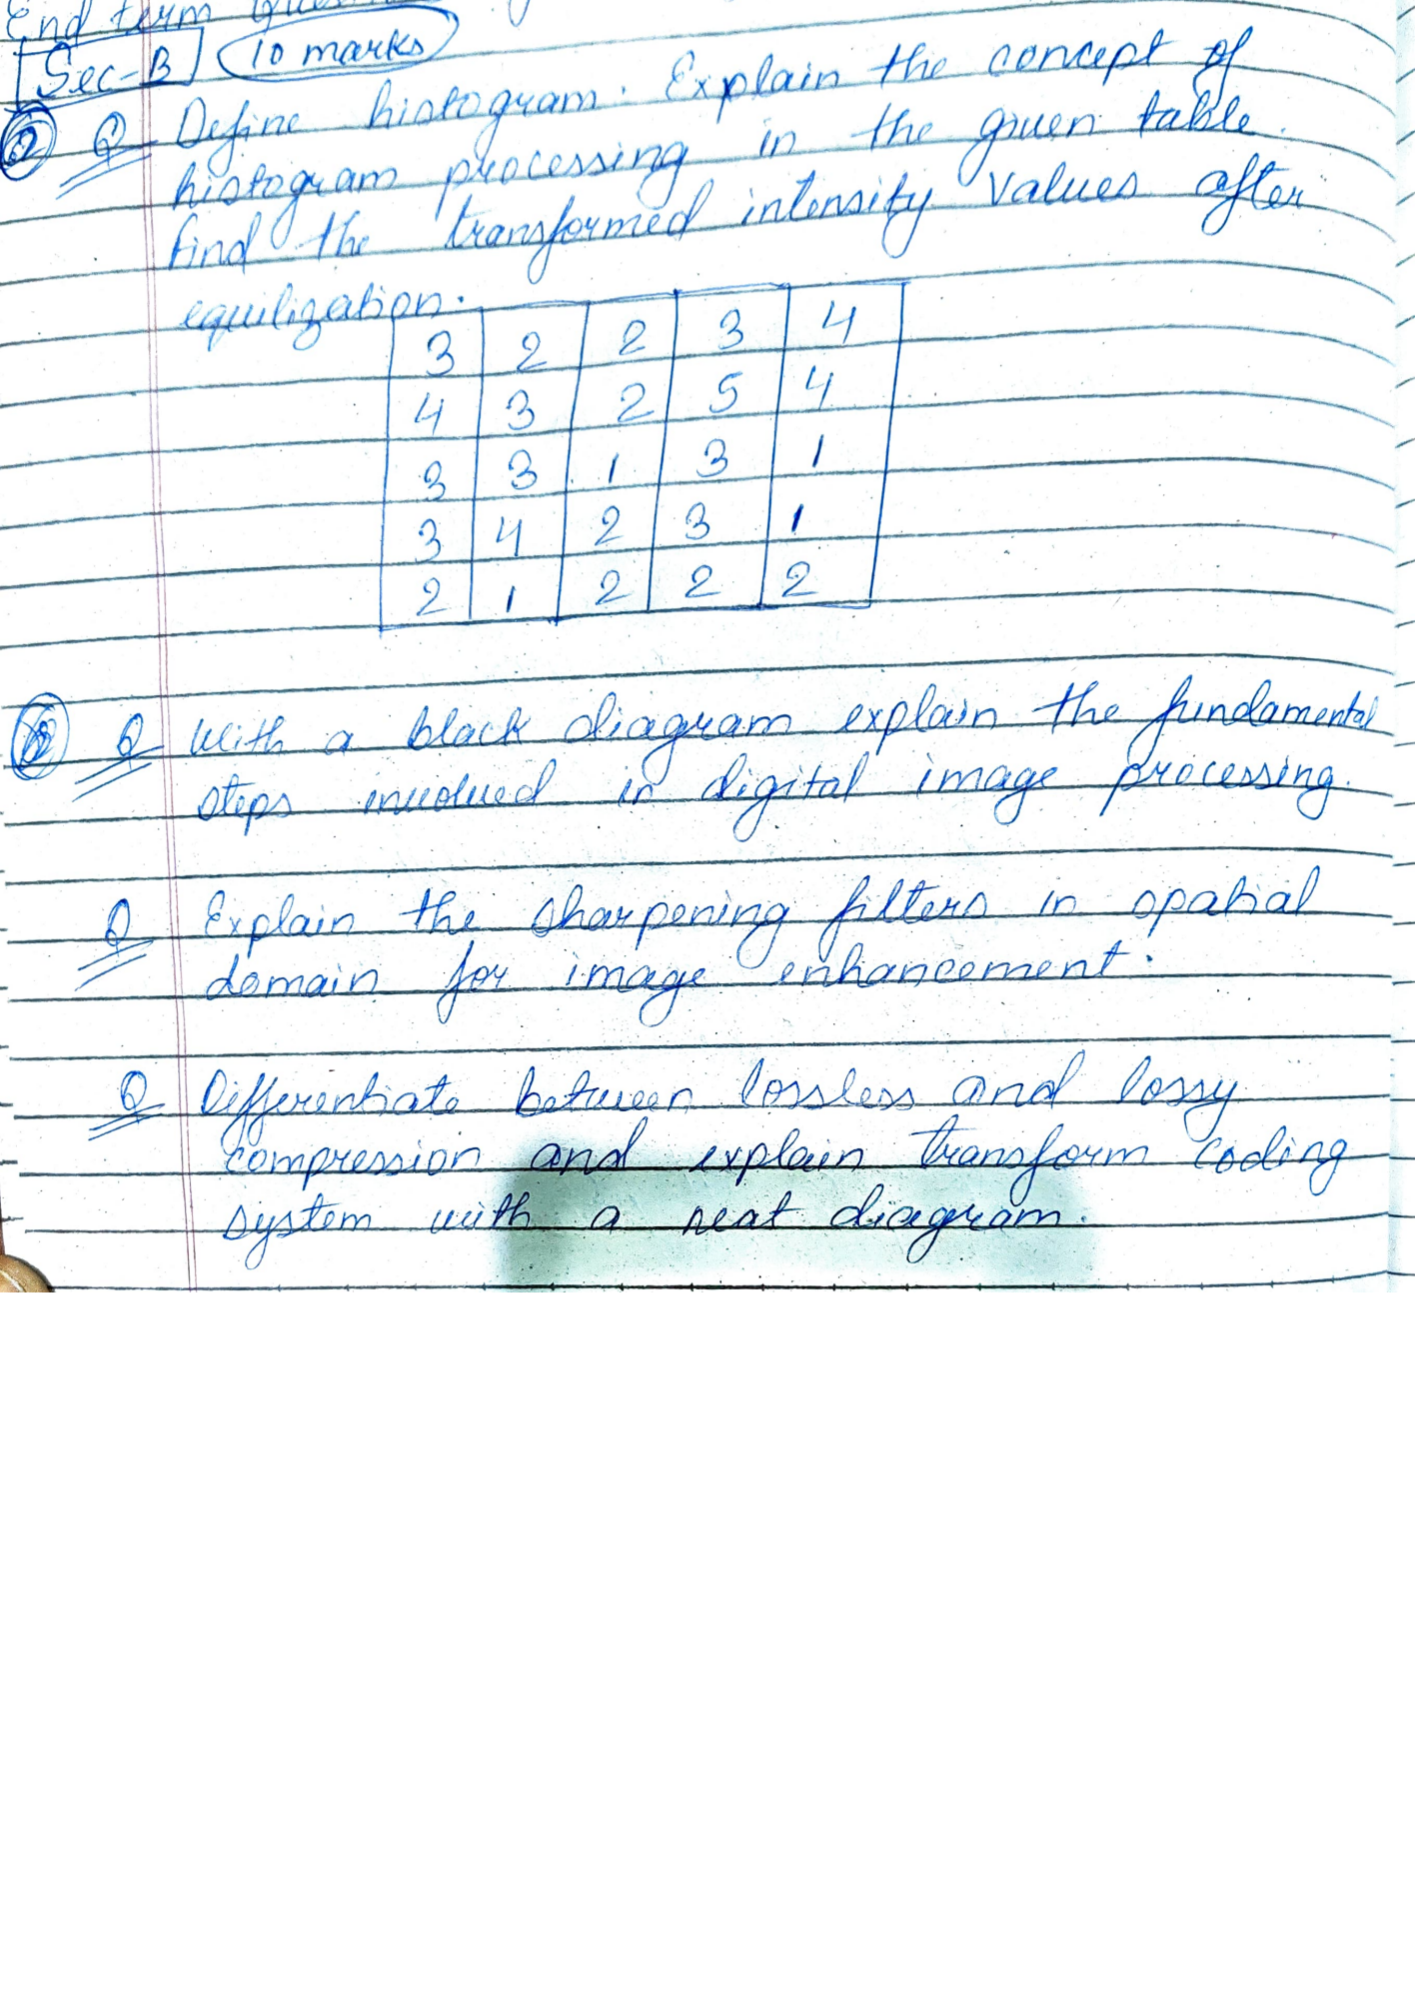 End term
Sec-B 10 marks
2 Q Define histogram. Explain the concept of
histogram processing in the given table.
find the transformed intensity values after
equilization.
3 2 2 3 4
4 3 2 5 4
3 3 1 3 1
3 4 2 3 1
2 1 2 2 2
Q With a block diagram explain the fundamental
steps involved in digital image processing.
Q Explain the sharpening filters in spatial
domain for image enhancement.
Q Differentiate between lossless and lossy
compression and explain transform coding
system with a neat diagram.